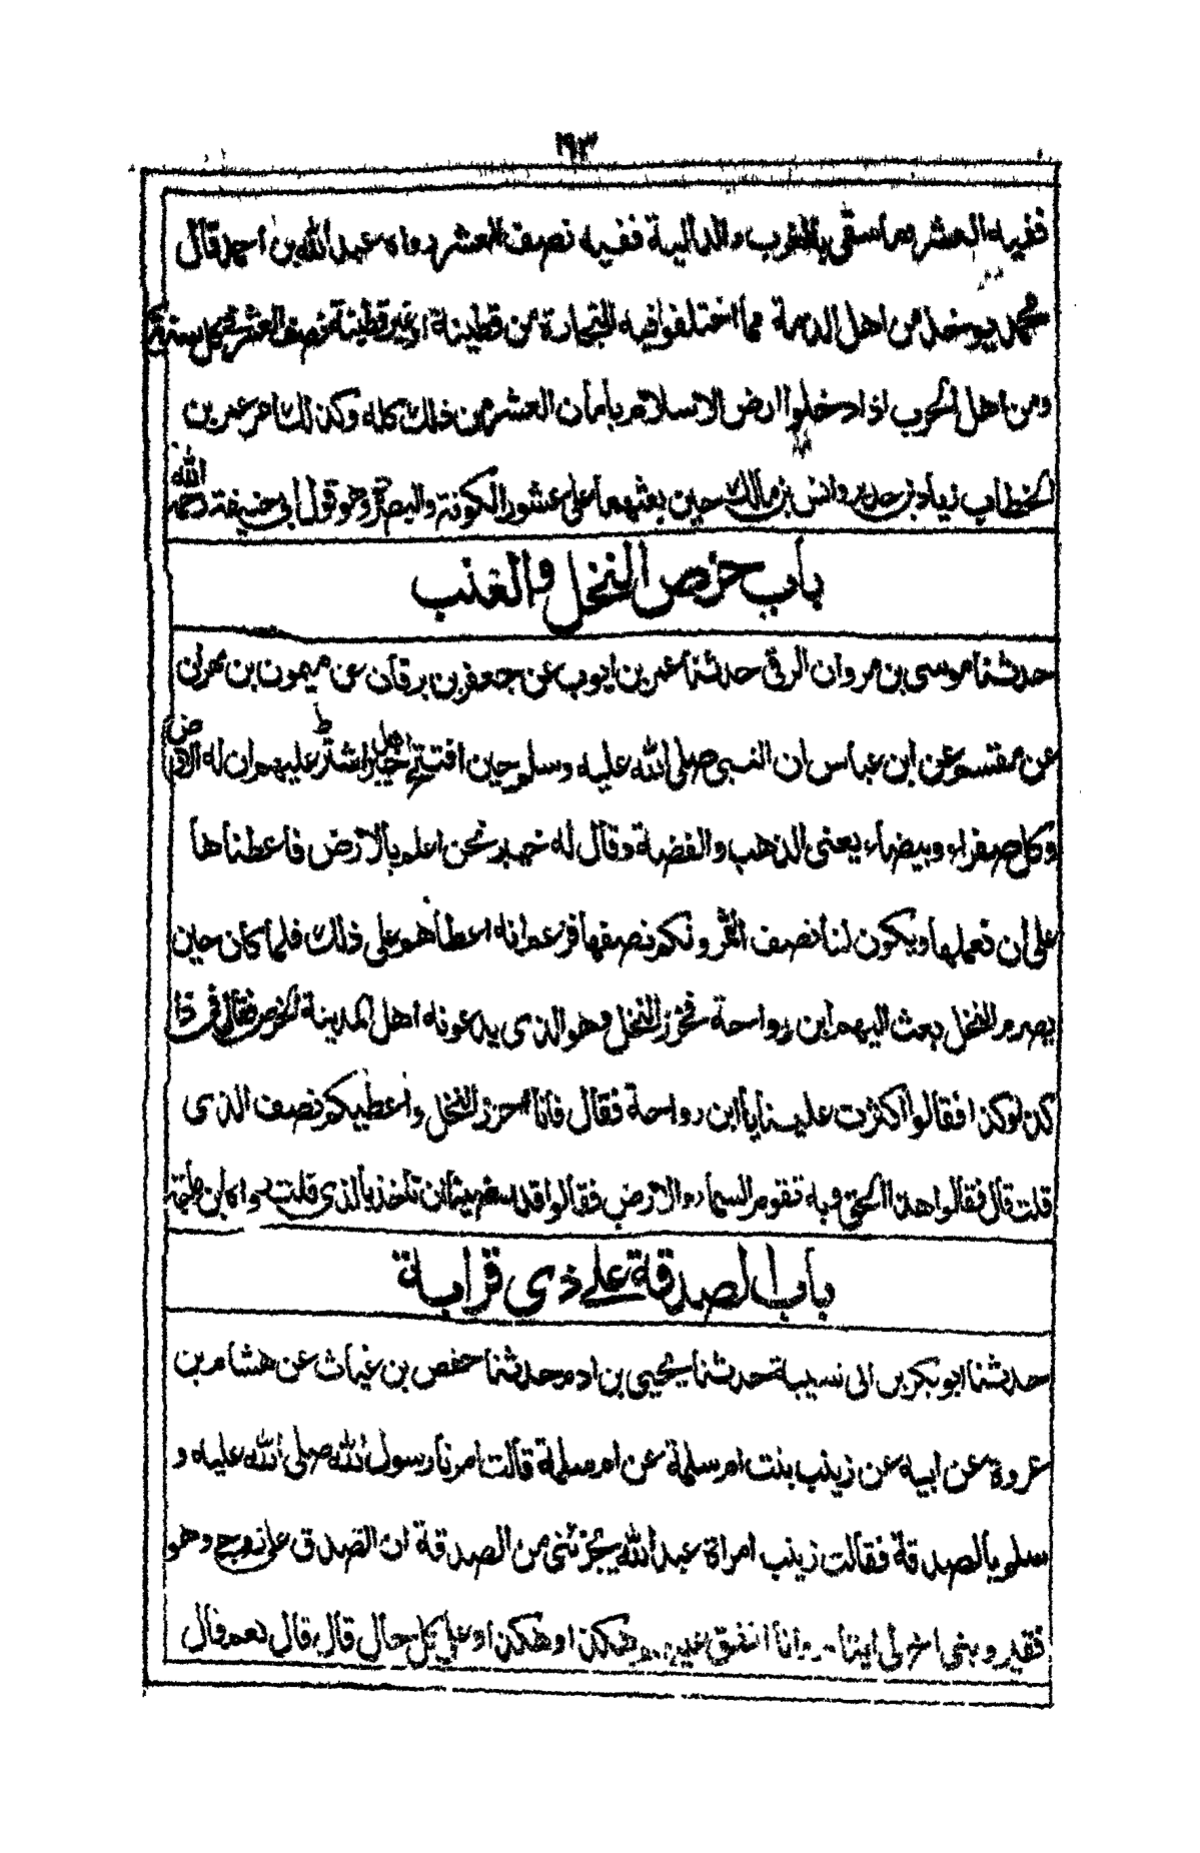 ١٩٣
ففيه العشر وما سقى بالغرب والدالية ففيه نصف العشر رواه عبد الله بن احمد قال
محمد يوخذ من اهل الذمة مما اختلفوا فيه للتجارة من قطينة او غير قطينة نصف العشر فى كل سنة
ومن اهل الحرب اذا دخلوا ارض الاسلام بأمان العشر من ذلك كله وكذلك امر عمر بن
الخطاب زياد بن حدير وانس بن مالك حين بعثهما على عشور الكوفة والبصرة وهو قول ابى حنيفة رحمه الله
باب خرص النخل والعنب
حدثنا موسى بن مروان الرقى حدثنا عمر بن ايوب عن جعفر بن برقان عن ميمون بن مهران
عن مقسم عن ابن عباس ان النبى صلى الله عليه وسلم حين افتتح خيبر اشترط عليهم ان له الارض
وكل صفراء وبيضاء يعنى الذهب والفضة وقال له اهل خيبر نحن اعلم بالارض فاعطناها
على ان نعملها ويكون لنا نصف الثمر ولكم نصفها فزعم انه اعطاهم على ذلك فلما كان حين
يصرم النخل بعث اليهم ابن رواحة فحزر النخل وهو الذى يدعونه اهل المدينة الخرص فقال فى ذا
كذا وكذا فقالوا اكثرت علينا يا ابن رواحة فقال فانا احزر النخل واعطيكم نصف الذى
قلت قال فقالوا هذا الحق وبه تقوم السماء والارض فقالوا قد رضينا ان نأخذ بالذى قلت رواه ابن ماجة
باب الصدقة على ذى قرابة
حدثنا ابو بكر بن ابى شيبة حدثنا يحيى بن ادم حدثنا حفص بن غياث عن هشام بن
عروة عن ابيه عن زينب بنت ام سلمة عن ام سلمة قالت امرنا رسول الله صلى الله عليه و
سلم بالصدقة فقالت زينب امراة عبد الله يجزئنى من الصدقة ان اتصدق على زوجى وهو
فقير وبنى اخ لى ايتام وانا انفق عليهم هكذا وهكذا وعلى كل حال قال قال نعم قال